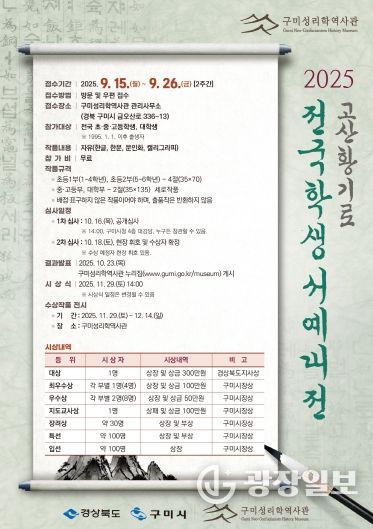 구미성리학역사관
Gumi Neo-Confucianism History Museum
2025
고산황기로
전국학생서예대전
접수기간 | 2025. 9. 15.(월) ~ 9. 26.(금) [2주간]
접수방법 | 방문 및 우편 접수
접수장소 | 구미성리학역사관 관리사무소
(경북 구미시 금오산로 336-13)
참가대상 | 전국 초·중·고등학생, 대학생
※ 1995. 1. 1. 이후 출생자
작품내용 | 자유(한글, 한문, 문인화, 캘리그라피)
참 가 비 | 무료
작품규격
초등1부(1~4학년), 초등2부(5~6학년) - 4절(35×70)
중·고등부, 대학부 - 2절(35×135) 세로작품
배접·표구하지 않은 작품이어야 하며, 출품작은 반환하지 않음
심사일정
1차 심사 : 10. 16.(목), 공개심사
※ 14:00, 구미시청 4층 대강당, 누구든 참관할 수 있음.
2차 심사 : 10. 18.(토), 현장 휘호 및 수상자 확정
※ 수상 예정자 현장 휘호 있음.
결과발표 | 2025. 10. 23.(목)
구미성리학역사관 누리집(www.gumi.go.kr/museum) 게시
시 상 식 | 2025. 11. 29.(토) 14:00
※ 시상식 일정은 변경될 수 있음
수상작품 전시
기 간 : 2025. 11. 29.(토) ~ 12. 14.(일)
장 소 : 구미성리학역사관
시상내역
등 위 시 상 자 시상내역 비 고
대상 1명 상장 및 상금 300만원 경상북도지사상
최우수상 각 부별 1명(4명) 상장 및 상금 100만원 구미시장상
우수상 각 부별 2명(8명) 상장 및 상금 50만원 구미시장상
지도교사상 1명 상패 및 상금 100만원 구미시장상
장려상 약 30명 상장 및 부상 구미시장상
특선 약 100명 상장 및 부상 구미시장상
입선 약 100명 상장 구미시장상
경상북도
구미시
구미성리학역사관
Gumi Neo-Confucianism History Museum
광장일보